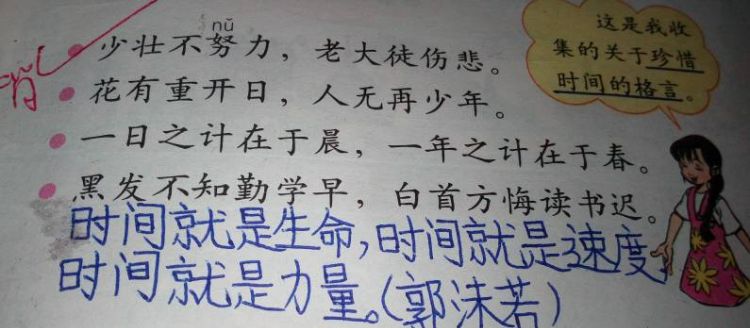 nǔ
少壮不努力，老大徒伤悲。
花有重开日，人无再少年。
一日之计在于晨，一年之计在于春。
黑发不知勤学早，白首方悔读书迟。
时间就是生命，时间就是速度，
时间就是力量。(郭沫若)
这是我收
集的关于珍惜
时间的格言。
背